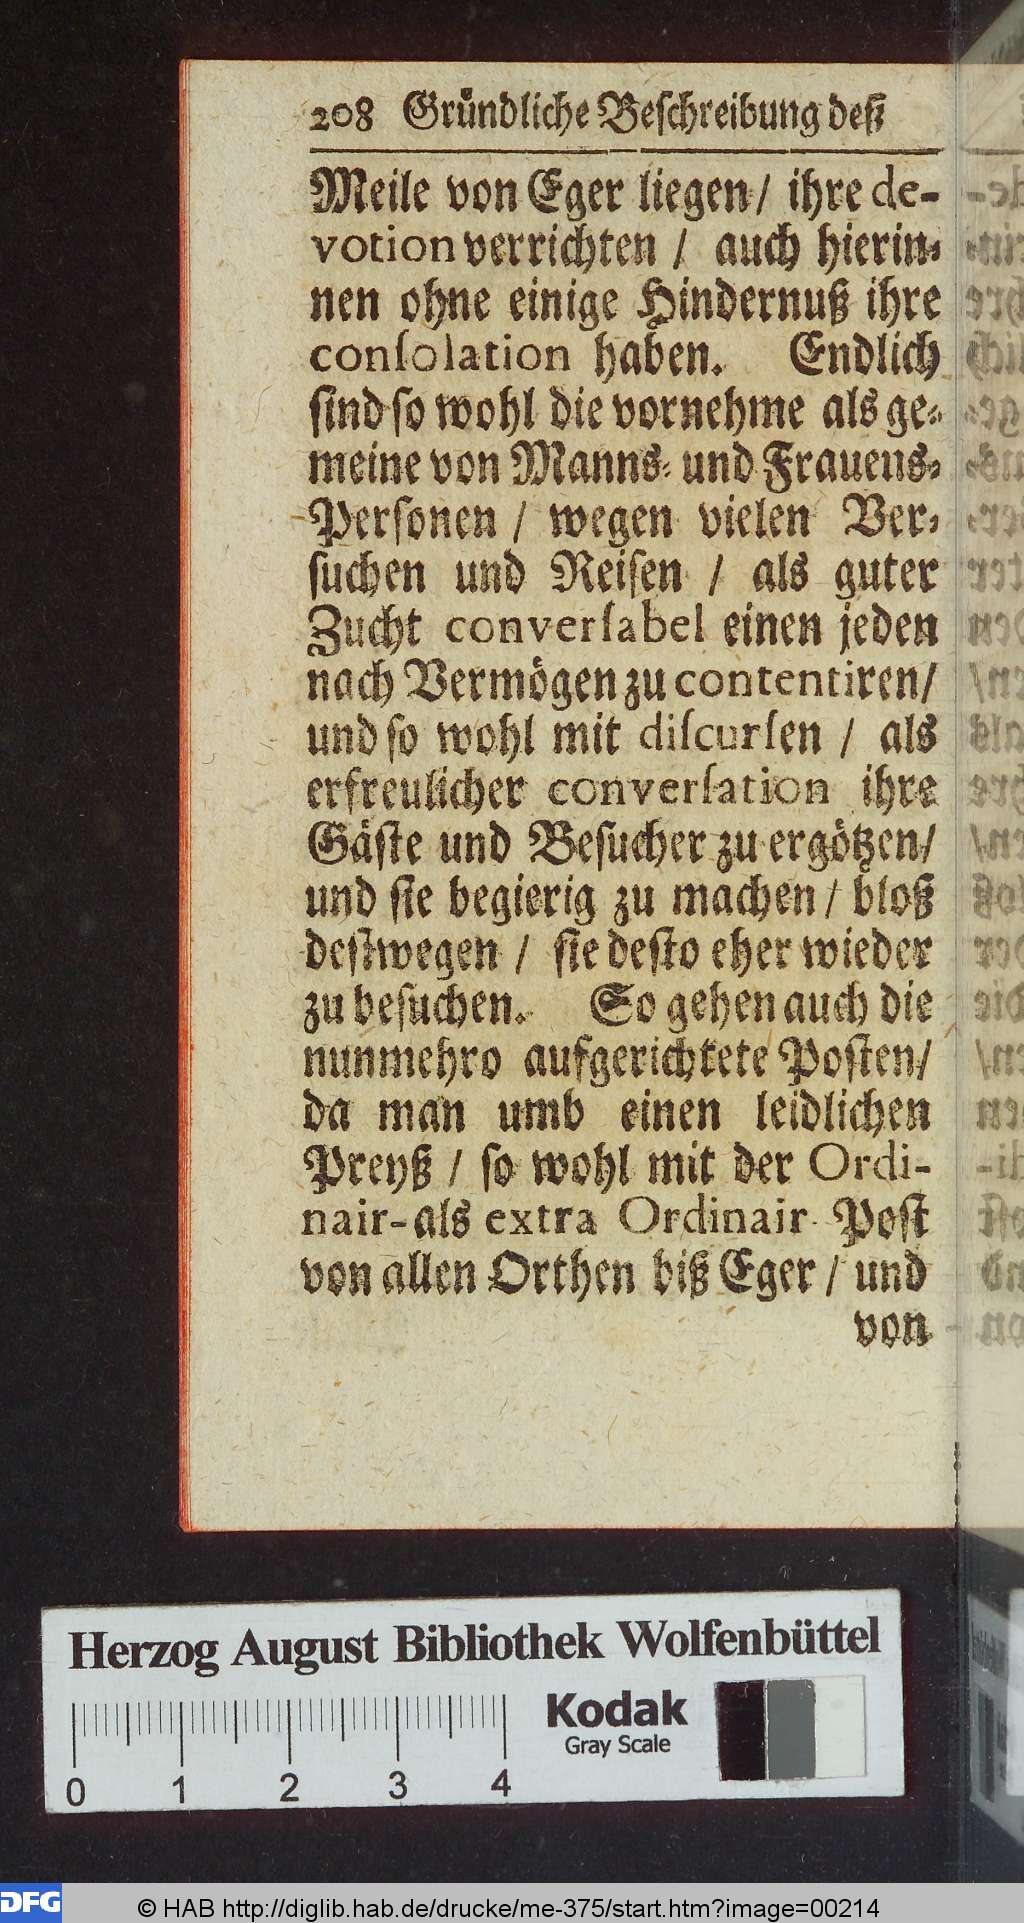 208 Gruͤndliche Beſchreibung deß
Meile von Eger liegen/ ihre de-
votion verrichten / auch hierin⸗
nen ohne einige Hindernuß ihre
conſolation haben. Endlich
ſind ſo wohl die vornehme als ge⸗
meine von Manns⸗ und Frauens⸗
Perſonen / wegen vielen Ver⸗
ſuchen und Reiſen / als guter
Zucht converſabel einen jeden
nach Vermögen zu contentiren/
und ſo wohl mit diſcurſen / als
erfreulicher converſation ihre
Gäſte und Beſucher zu ergötzen/
und ſie begierig zu machen / bloß
deſtwegen / ſie deſto eher wieder
zu beſuchen. So gehen auch die
nunmehro aufgerichtete Poſten/
da man umb einen leidlichen
Preyß / ſo wohl mit der Ordi-
nair-als extra Ordinair Poſt
von allen Orthen biß Eger / und
von
Herzog August Bibliothek Wolfenbüttel
Kodak
Gray Scale
0 1 2 3 4
DFG
© HAB http://diglib.hab.de/drucke/me-375/start.htm?image=00214